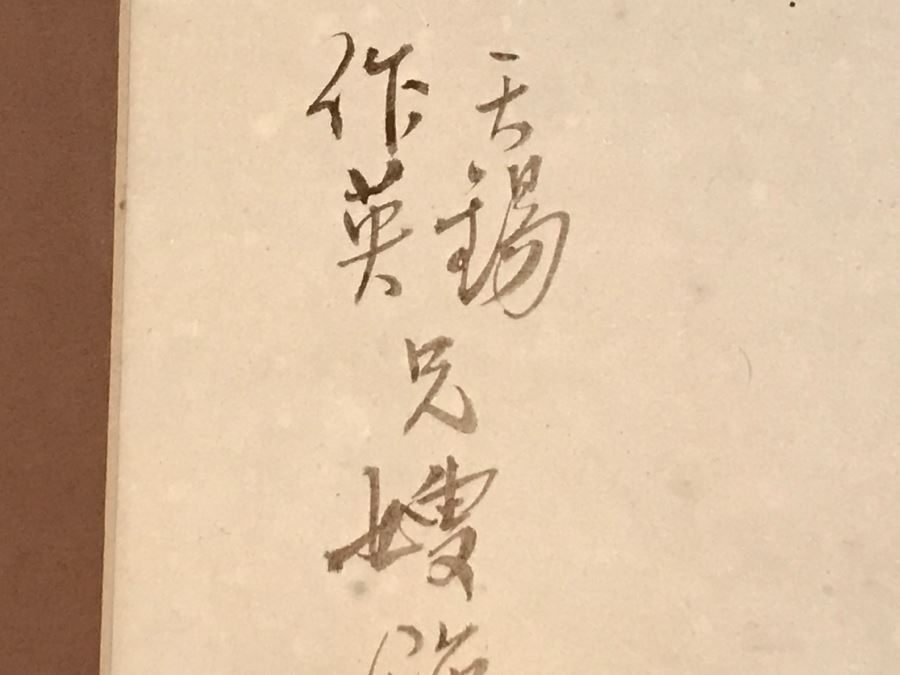 天錫
作英
兄
嫂